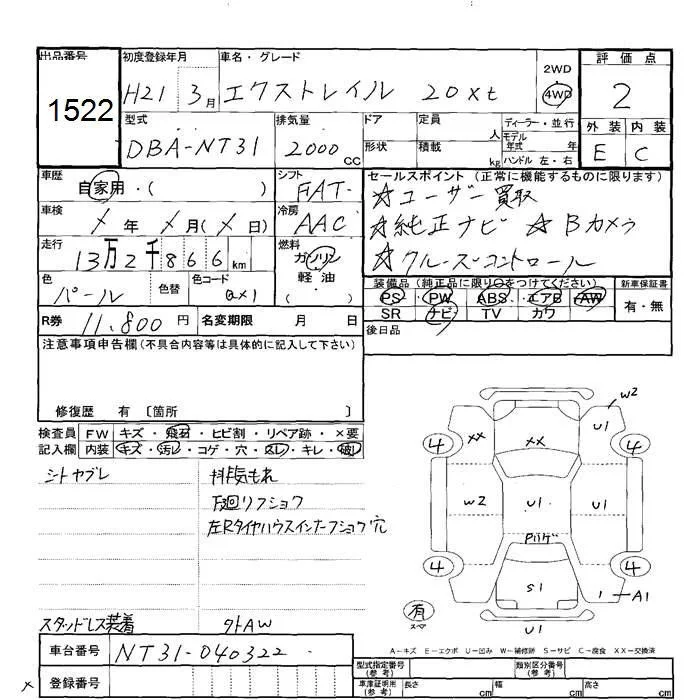 出品番号 初度登録年月 車名・グレード 2WD 4WD 評価点
1522 H21 3月 エクストレイル 20xt 2
型式 排気量 ドア 定員 人 ディーラー・並行 外装 内装
DBA-NT31 2000cc 形状 積載 kg モデル年式 年 ハンドル 左・右 E C
車歴 自家用・( ) シフト FAT セールスポイント (正常に機能するものに限ります)
☆ユーザー買取
車検 X年 X月(X日) 冷房 AAC ☆純正ナビ ☆Bカメラ
走行 13万2千866km 燃料 ガソリン 軽油 ・( ) ☆クルーズコントロール
色 パール 色替 色コード QX1
装備品 (純正品に限り○をつけてください) 新車保証書
PS PW ABS エアB AW 有・無
SR ナビ TV カワ
R券 11,800円 名変期限 月 日 後日品
注意事項申告欄(不具合内容等は具体的に記入して下さい)
修復歴 有 〔箇所 〕
検査員記入欄 FW キズ・飛石・ヒビ割・リペア跡・×要
内装 キズ・汚レ・コゲ・穴・凹レ・キレ・破レ
シトヤブレ 排気もれ
下廻リフショク
左Rタイヤハウスインナーフショク穴
スタッドレス装着 外AW
車台番号 NT31-040322
× 登録番号
W2
U1
XX XX
4 4
W2 U1 U1
Pバゲ
4 4
S1 1 A1
有 スペア
U1
A-キズ E-エクボ U-凹み W-補修跡 S-サビ C-腐食 XX-交換済
型式指定番号(参考) 類別区分番号(参考)
車庫証明用(参考) 長さ cm 幅 cm 高さ cm